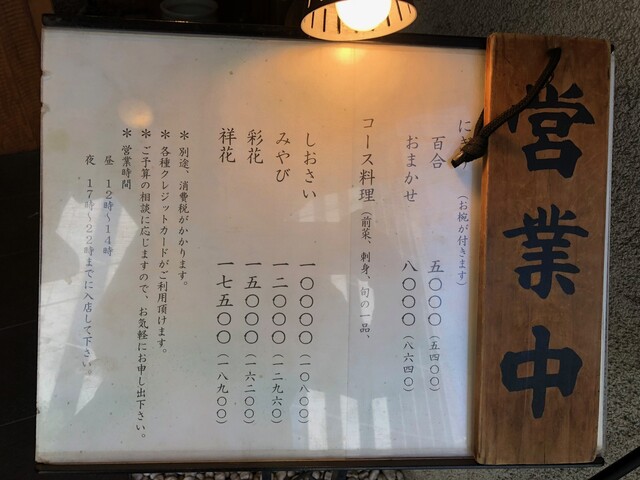 営業中
にぎり（お椀が付きます）
百合 五〇〇〇（五四〇〇）
おまかせ 八〇〇〇（八六四〇）
コース料理（前菜、刺身、旬の一品、
しおさい 一〇〇〇〇（一〇八〇〇）
みやび 一二〇〇〇（一二九六〇）
彩花 一五〇〇〇（一六二〇〇）
祥花 一七五〇〇（一八九〇〇）
＊別途、消費税がかかります。
＊各種クレジットカードがご利用頂けます。
＊ご予算の相談に応じますので、お気軽にお申し出下さい。
＊営業時間
昼 12時〜14時
夜 17時〜22時までに入店して下さい。